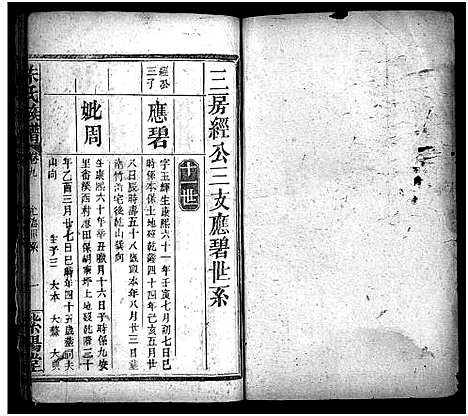 三房經公三支應碧世系
十一世
經公三子
應碧
字玉輝生康熙六十一年壬寅七月初七日巳
時係本保土地歿乾隆四十四年己亥五月廿
八日辰時壽五十八歲卽取本年八月廿三日葬
南竹沜宅後乾山巽向
妣周
生康熙六十年辛丑臘月十六日子時係九安
里番陂西村層田保胡家坪土地歿乾隆三十
年乙酉三月廿七日巳時年四十五歲葬祠夫
山向
生子三 大本 大
朱氏族譜 卷九
一 紫陽堂